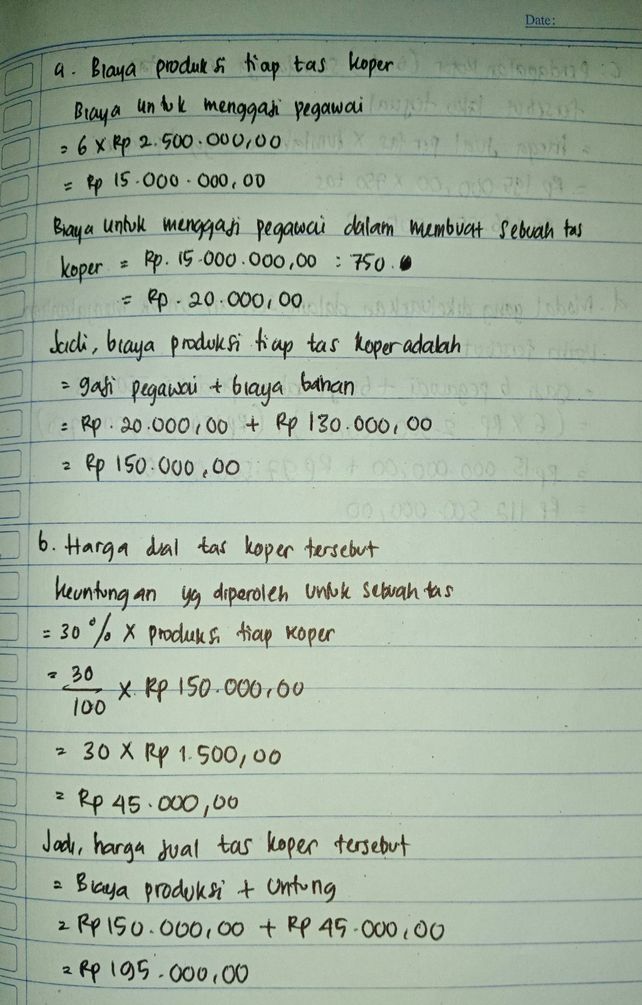 Date:
a. Biaya produksi tiap tas koper
Biaya untuk menggaji pegawai
= 6 x Rp 2.500.000,00
= Rp 15.000.000,00
Biaya untuk menggaji pegawai dalam membuat sebuah tas
koper = Rp. 15.000.000,00 : 750.
= Rp. 20.000,00
Jadi, biaya produksi tiap tas koper adalah
= gaji pegawai + biaya bahan
= Rp. 20.000,00 + Rp 130.000,00
= Rp 150.000,00
b. Harga dual tas koper tersebut
keuntungan yg diperoleh untuk sebuah tas
= 30% x produksi tiap koper
= 30/100 x Rp 150.000,00
= 30 x Rp 1.500,00
= Rp 45.000,00
Jadi, harga jual tas koper tersebut
= Biaya produksi + Untung
= Rp 150.000,00 + Rp 45.000,00
= Rp 195.000,00